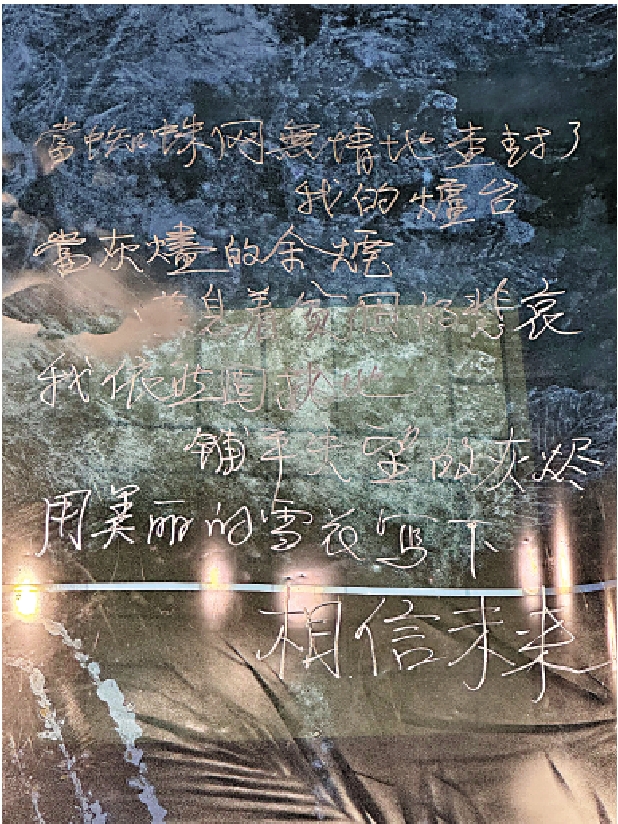 當蜘蛛网無情地查封了
我的爐台
當灰燼的余煙
息着貧困的悲哀
我依然固执地
鋪平失望的灰烬
用美丽的雪花写下
相信未来